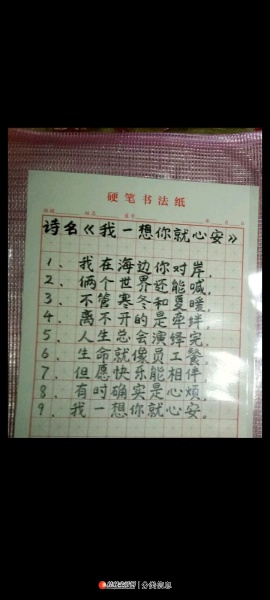 硬笔书法纸
诗名《我一想你就心安》
1、我在海边你对岸，
2、俩个世界还能喊，
3、不管寒冬和夏暖，
4、离不开的是牵绊，
5、人生总会演绎完，
6、生命就像员工餐，
7、但愿快乐能相伴，
8、有时确实是心烦，
9、我一想你就心安。
分类信息